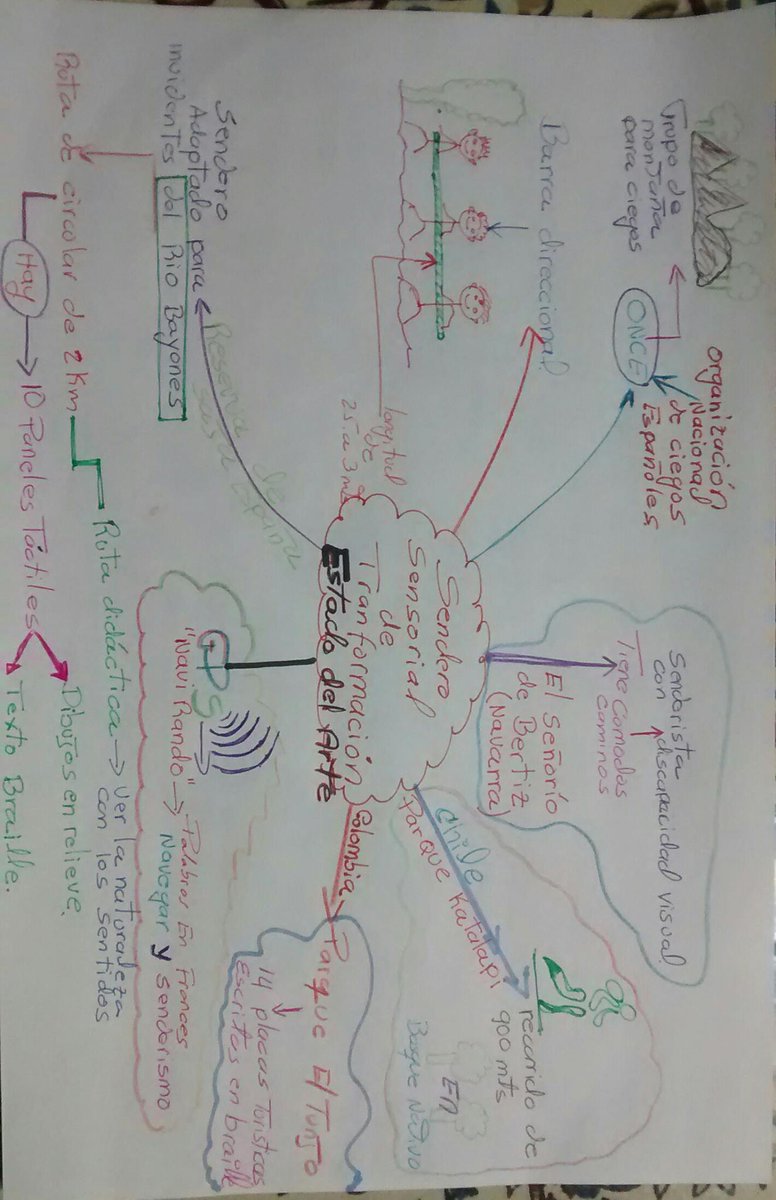 Sendero
Sensorial
de
Tranformación
Estado del Arte
ONCE
organización
Nacional
de ciegos
Españoles
Grupo de
montaña
para ciegos
Barra direccional
longitud
de
2.5. a 3 mts
Reserva de
Saja España
Sendero
Adaptado para
invidentes del Rio Bayones
Ruta de circular de 2 Km
Hay
10 Paneles Táctiles
Dibujos en relieve.
Texto Braille.
Ruta didáctica → Ver la naturaleza
con los sentidos
GPS
"Navi Rando" → Palabras En Frances
Navegar y senderismo
Colombia
Parque El Tunjo
14 placas Turísticas
Escritas en braille
chile
Parque Katalapi
recorrido de
900 mts
En
Bosque Nativo
El Señorío
de Bertiz
(Navarra)
Tiene Comodos
caminos
Senderista
con discapacidad visual